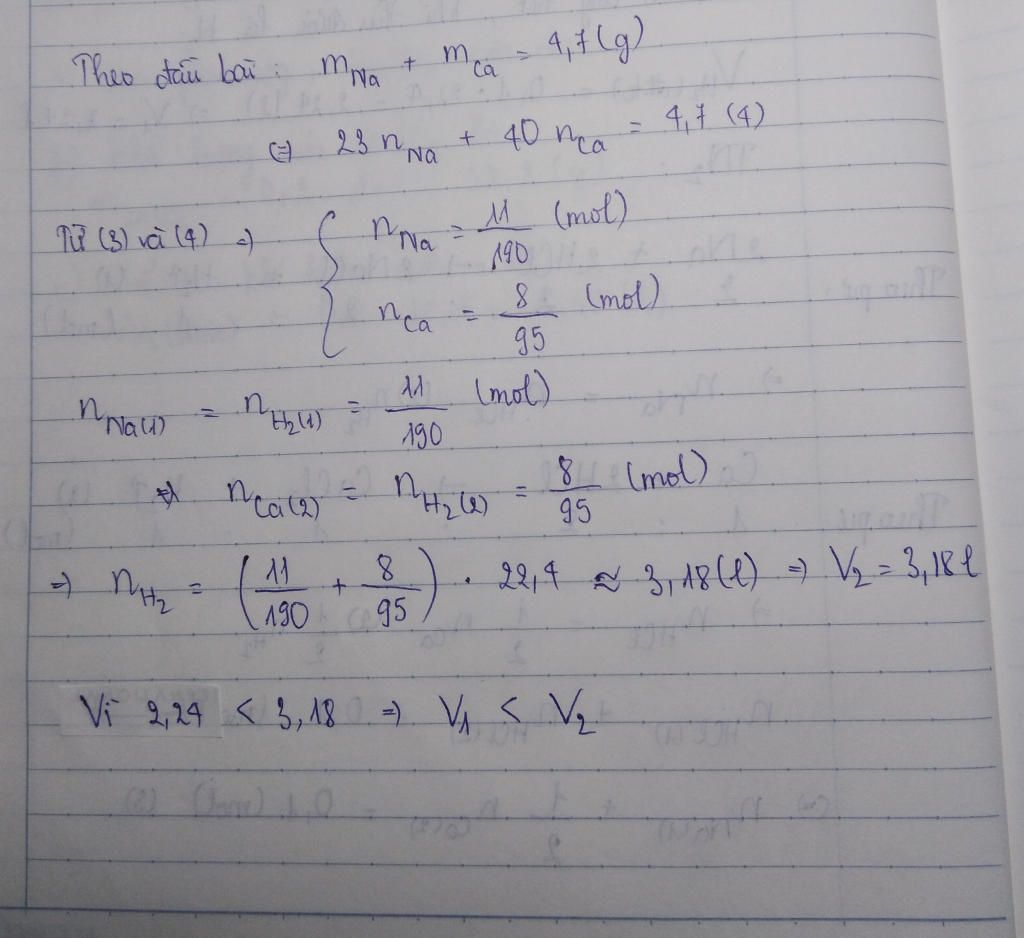 Theo đầu bài: m_Na + m_Ca = 4,7 (g)
⇔ 23 n_Na + 40 n_Ca = 4,7 (4)
Từ (3) và (4) ⇒ { n_Na = 11/190 (mol)
n_Ca = 8/95 (mol)
n_Na(1) = n_H₂(1) = 11/190 (mol)
⇒ n_Ca(2) = n_H₂(2) = 8/95 (mol)
⇒ n_H₂ = (11/190 + 8/95) . 22,4 ≈ 3,18 (l) ⇒ V₂ = 3,18 l
Vì 2,24 < 3,18 ⇒ V₁ < V₂